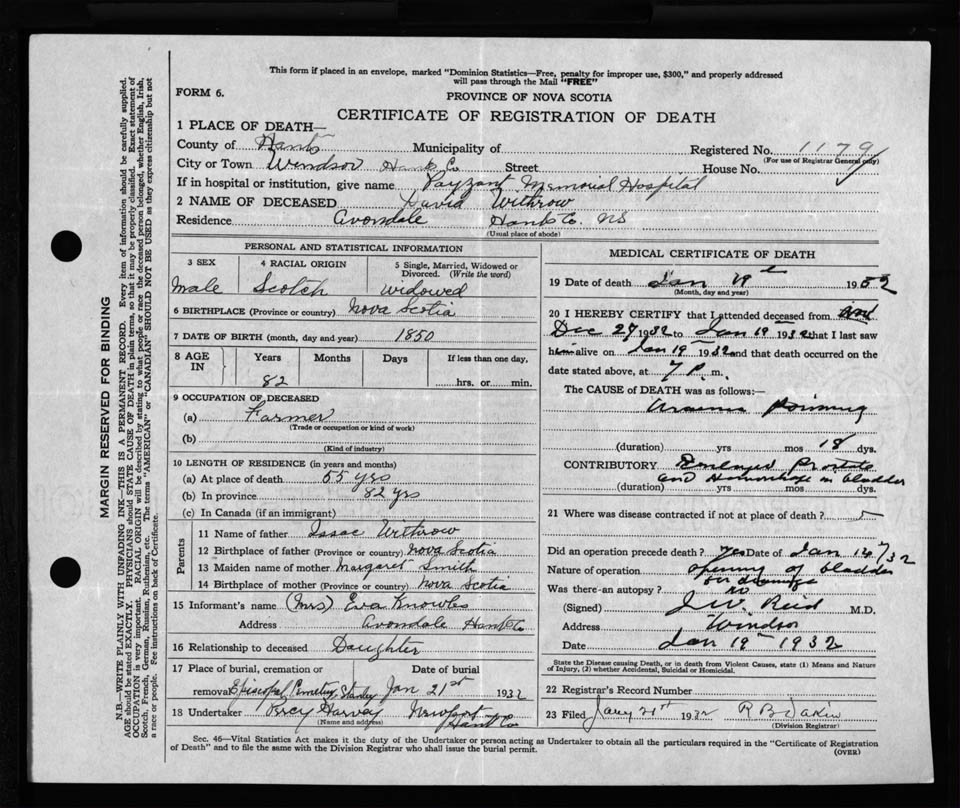 This form if placed in an envelope, marked "Dominion Statistics—Free, penalty for improper use, $300," and properly addressed
will pass through the Mail "FREE"
FORM 6.
PROVINCE OF NOVA SCOTIA
CERTIFICATE OF REGISTRATION OF DEATH
1 PLACE OF DEATH—
County of Hants Municipality of Registered No. 1179
(For use of Registrar General only)
City or Town Windsor Hants Co Street House No.
If in hospital or institution, give name Payzant Memorial Hospital
2 NAME OF DECEASED David Withrow
Residence Avondale Hants Co. NS
(Usual place of abode)
PERSONAL AND STATISTICAL INFORMATION
3 SEX 4 RACIAL ORIGIN 5 Single, Married, Widowed or Divorced. (Write the word)
Male Scotch Widowed
6 BIRTHPLACE (Province or country) Nova Scotia
7 DATE OF BIRTH (month, day and year) 1850
8 AGE IN Years Months Days If less than one day,
82 hrs. or min.
9 OCCUPATION OF DECEASED
(a) Farmer
(Trade or occupation or kind of work)
(b)
(Kind of industry)
10 LENGTH OF RESIDENCE (in years and months)
(a) At place of death 55 yrs
(b) In province 82 yrs
(c) In Canada (if an immigrant)
Parents
11 Name of father Isaac Withrow
12 Birthplace of father (Province or country) Nova Scotia
13 Maiden name of mother Margaret Smith
14 Birthplace of mother (Province or country) Nova Scotia
15 Informant's name (Mrs) Eva Knowles
Address Avondale Hants Co
16 Relationship to deceased Daughter
17 Place of burial, cremation or Date of burial
removal Episcopal Cemetery, Stanley Jan 21st 1932
18 Undertaker Percy Harvey Newport Hants Co.
(Name and address)
MEDICAL CERTIFICATE OF DEATH
19 Date of death Jan 19th 1932
(Month, day and year)
20 I HEREBY CERTIFY that I attended deceased from
Dec 27 1932 to Jan 19 1932 that I last saw
him alive on Jan 19 1932 and that death occurred on the
date stated above, at 7 P. m.
The CAUSE of DEATH was as follows:—
(duration) yrs mos 18 dys.
CONTRIBUTORY Enlarged Prostate
and Hemorrhage in bladder
(duration) yrs mos dys.
21 Where was disease contracted if not at place of death?
Did an operation precede death? yes Date of Jan 14th/32
Nature of operation opening of bladder
for drainage
Was there an autopsy? no
(Signed) J.W. Reid M.D.
Address Windsor
Date Jan 19th 1932
State the Disease causing Death, or in death from Violent Causes, state (1) Means and Nature
of Injury, (2) whether Accidental, Suicidal or Homicidal.
22 Registrar's Record Number
23 Filed Jany 21st 1932 R B Dakin
(Division Registrar)
Sec. 46—Vital Statistics Act makes it the duty of the Undertaker or person acting as Undertaker to obtain all the particulars required in the "Certificate of Registration
of Death" and to file the same with the Division Registrar who shall issue the burial permit.
(OVER)
MARGIN RESERVED FOR BINDING
N.B.—WRITE PLAINLY WITH UNFADING INK—THIS IS A PERMANENT RECORD. Every item of information should be carefully supplied.
AGE should be stated EXACTLY. PHYSICIANS should STATE CAUSE OF DEATH in plain terms, so that it may be properly classified. Exact statement of
OCCUPATION is very important. RACIAL ORIGIN will be described by stating to what people or race the deceased person belonged, whether English, Irish,
Scotch, French, German, Russian, Ruthenian, etc. The terms "AMERICAN" or "CANADIAN" SHOULD NOT BE USED as they express citizenship but not
a race or people. See instructions on back of Certificate.